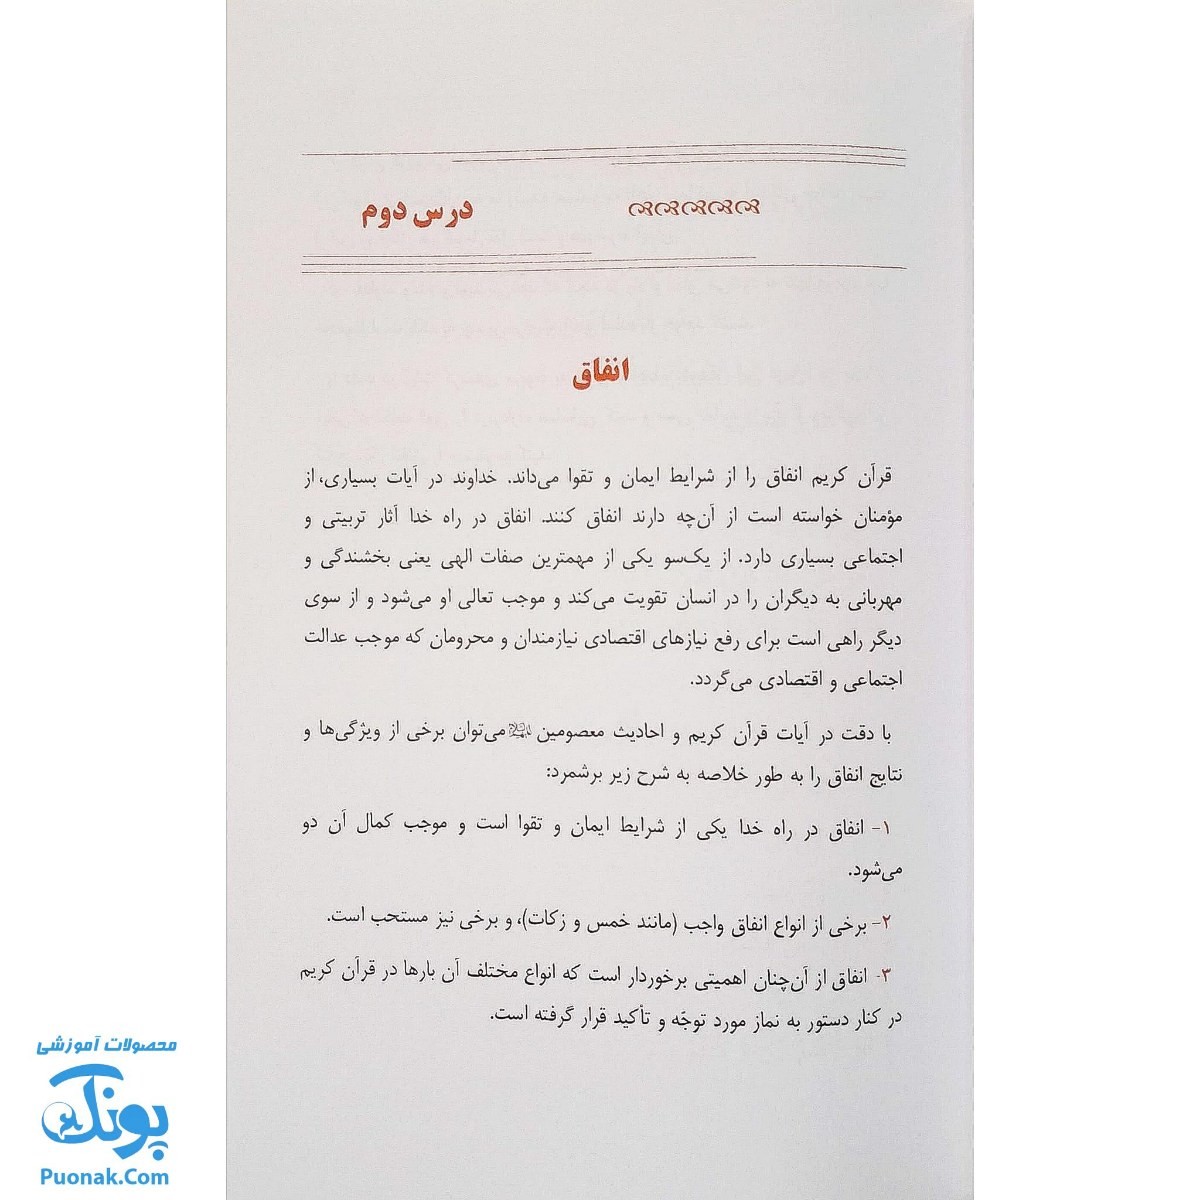 درس دوم
انفاق
قرآن کریم انفاق را از شرایط ایمان و تقوا می‌داند. خداوند در آیات بسیاری، از
مؤمنان خواسته است از آن‌چه دارند انفاق کنند. انفاق در راه خدا آثار تربیتی و
اجتماعی بسیاری دارد. از یک‌سو یکی از مهمترین صفات الهی یعنی بخشندگی و
مهربانی به دیگران را در انسان تقویت می‌کند و موجب تعالی او می‌شود و از سوی
دیگر راهی است برای رفع نیازهای اقتصادی نیازمندان و محرومان که موجب عدالت
اجتماعی و اقتصادی می‌گردد.
با دقت در آیات قرآن کریم و احادیث معصومین می‌توان برخی از ویژگی‌ها و
نتایج انفاق را به طور خلاصه به شرح زیر برشمرد:
۱- انفاق در راه خدا یکی از شرایط ایمان و تقوا است و موجب کمال آن دو
می‌شود.
۲- برخی از انواع انفاق واجب (مانند خمس و زکات)، و برخی نیز مستحب است.
۳- انفاق از آن‌چنان اهمیتی برخوردار است که انواع مختلف آن بارها در قرآن کریم
در کنار دستور به نماز مورد توجّه و تأکید قرار گرفته است.
محصولات آموزشی
پونک
Puonak.Com